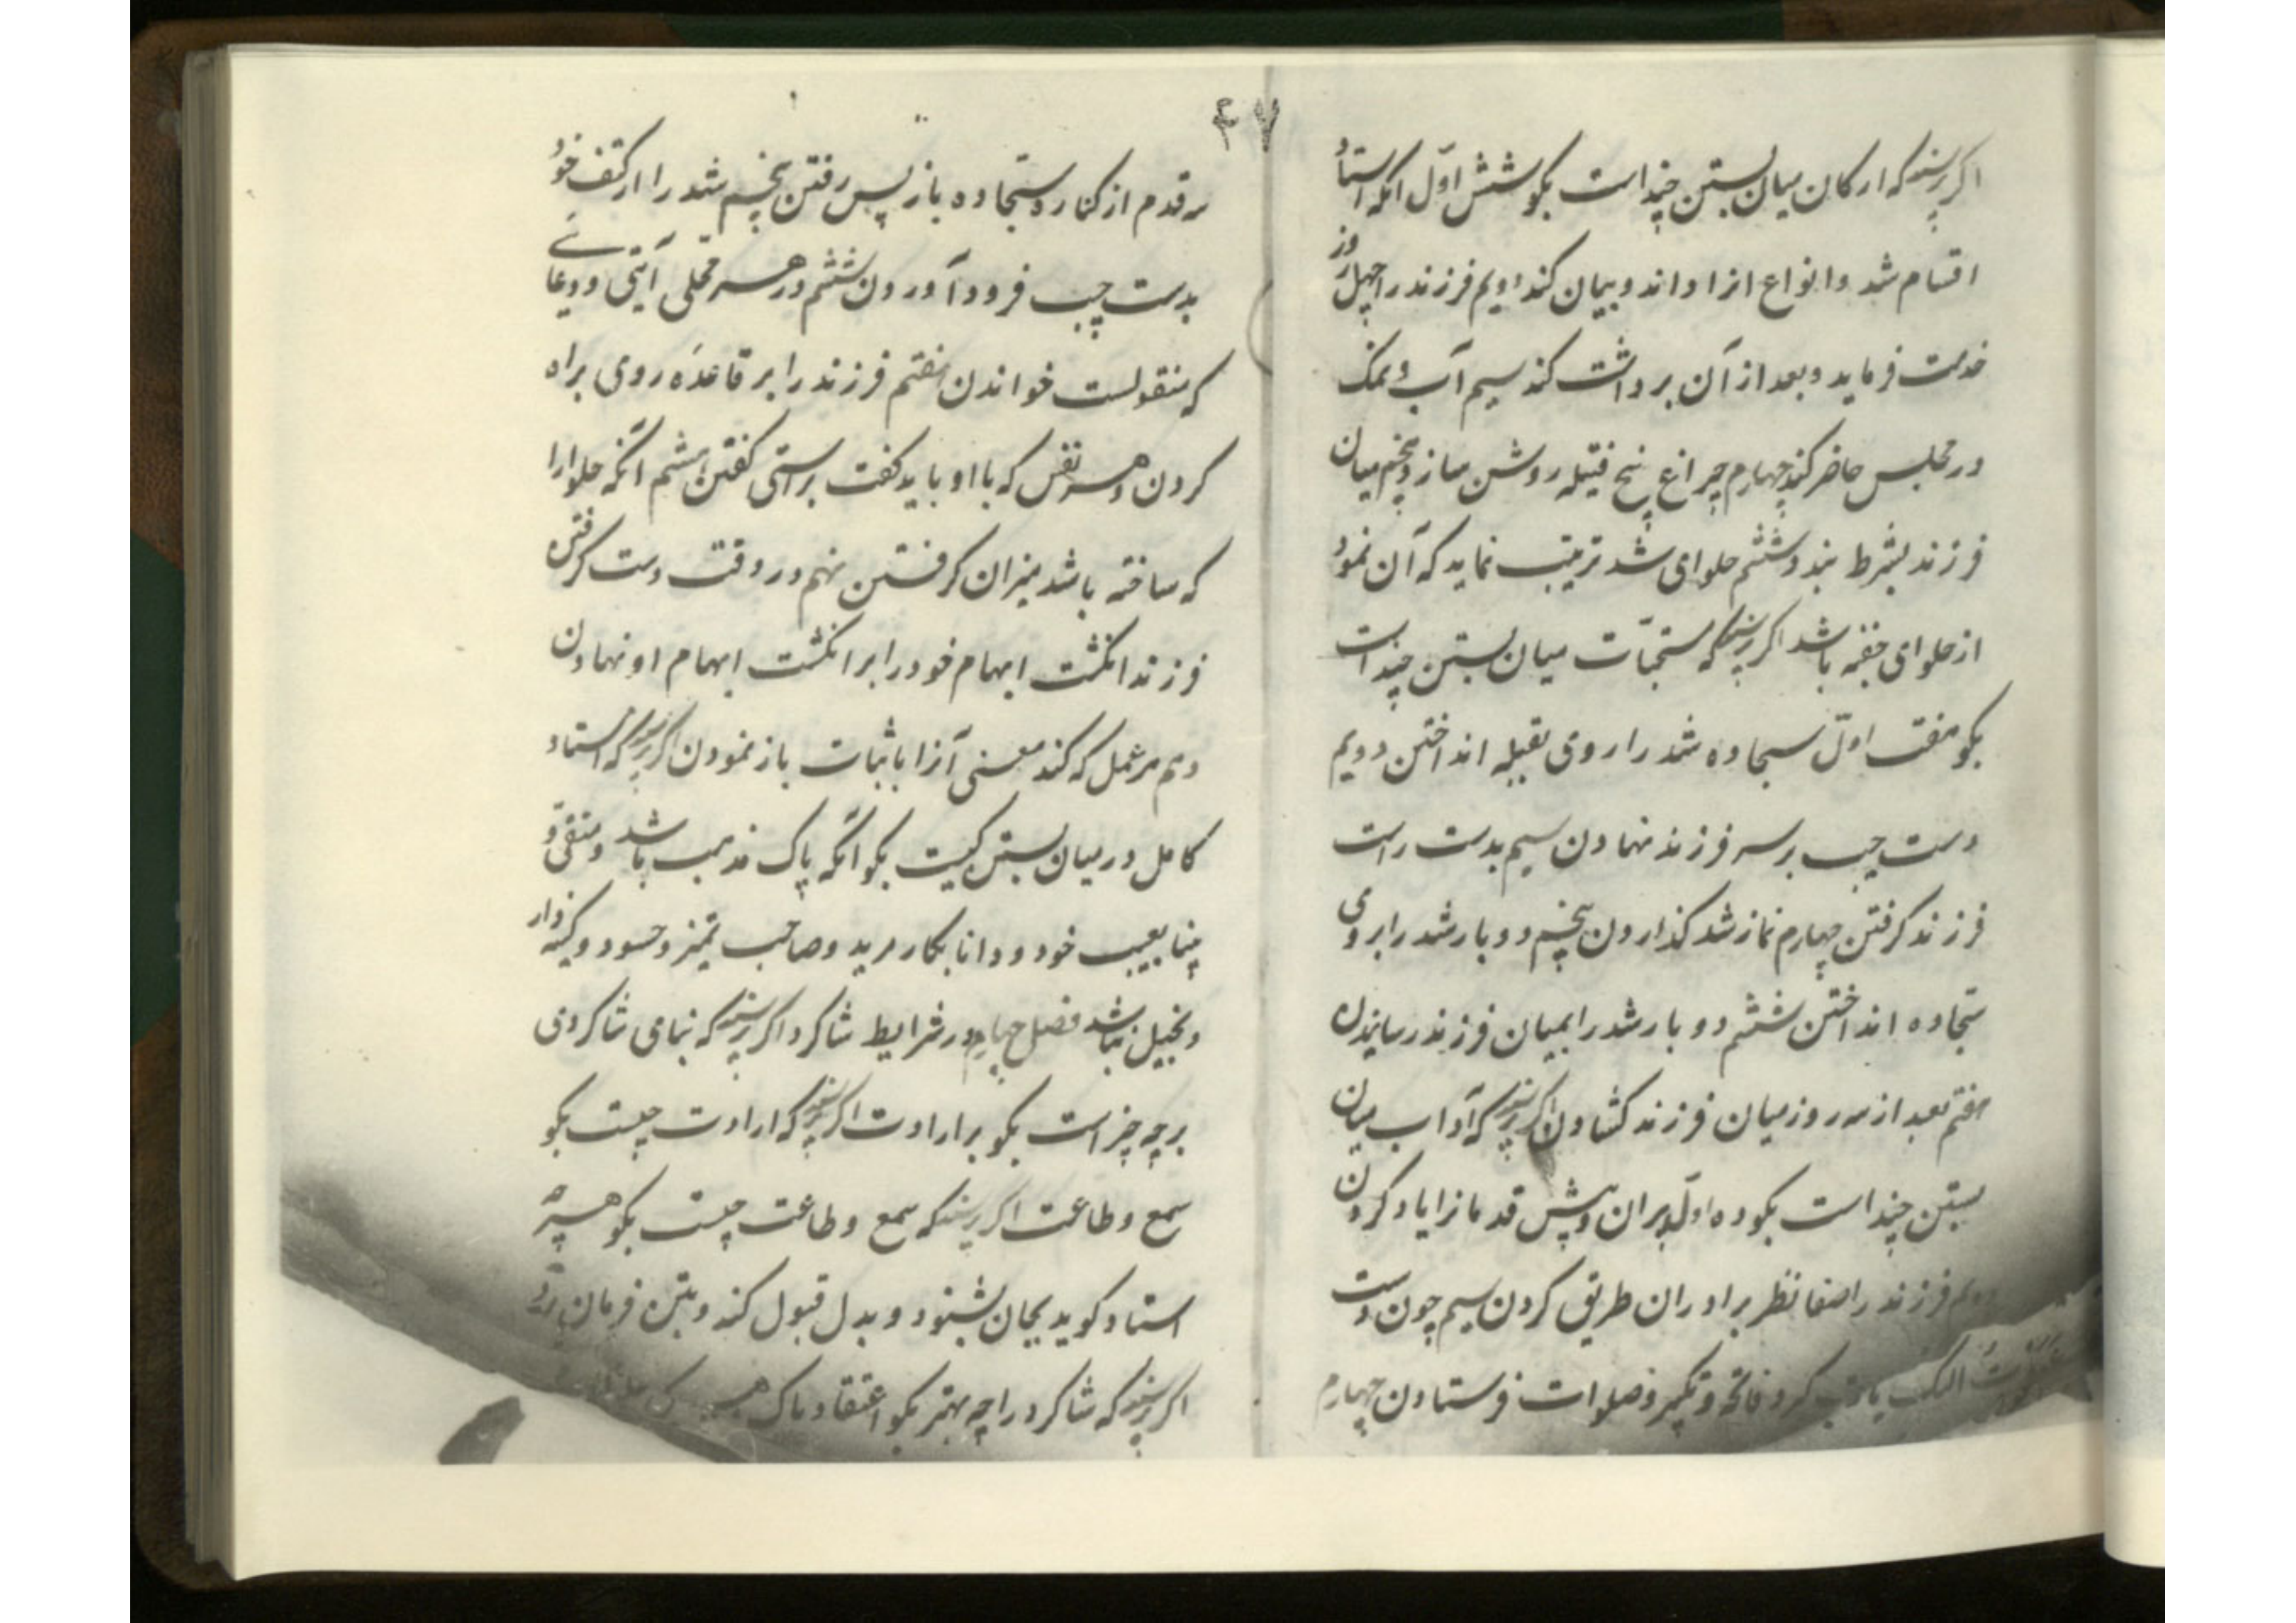 ۴۷
اکر پرسند که ارکان میان بستن چند است بکو شش اول انکه استاد
اقسام شد و انواع انرا داند و بیان کند دویم فرزند را چهل روز
خدمت فرماید و بعد از آن برداشت کند سیم آب و نمک
در مجلس حاضر کند چهارم چراغ پنج فتیله روشن سازد پنجم میان
فرزند بشرط بندد ششم حلوای شد ترتیب نماید که آن نمود
از حلوای خفیه باشد اکر پرسند که مستحبات میان بستن چند است
بکو هفت اول سجاده شد را روی بقبله انداختن دویم
دست چپ بر سر فرزند نهادن سیم بدست راست
فرزند کرفتن چهارم نماز شد کذاردن پنجم دو بار شد را بر روی
سجاده انداختن ششم دو بار شد را بمیان فرزند رسانیدن
هفتم بعد از سه روز میان فرزند کشادن اکر پرسند که آداب میان
بستن چند است بکو ده اول پیران و پیش قدمانرا یاد کردن
دویم فرزند را صفا نظر برادران طریق کردن سیم چون دست
کرد فاتحه و تکبیر و صلوات فرستادن چهارم
سه قدم از کناره سجاده باز پس رفتن پنجم شد را از کتف خود
بدست چپ فرود آوردن ششم در هر محلی آیتی و دعائے
که منقولست خواندن هفتم فرزند را بر قاعده روی براه
کردن و هر نفس که با او باید کفت براستی کفتن هشتم انکه حلوا را
که ساخته باشد بمیزان کرفتن نهم در وقت دست کرفتن
فرزند انکشت ابهام خود را بر انکشت ابهام او نهادن
دهم هر عمل که کند معنی آنرا باثبات باز نمودن اکر پرسند که استاد
کامل در میان بستن کیست بکو انکه پاک مذهب باشد و متقی و
بینا بعیب خود و دانا بکار مرید و صاحب تمیز و حسود و کینه دار
و بخیل نباشد فصل چهارم در شرایط شاکرد اکر پرسند که بنای شاکردی
بر چه چیز است بکو بر ارادت اکر پرسند که ارادت چیست بکو
سمع و طاعت اکر پرسند که سمع و طاعت چیست بکو هرچه
استاد کوید بجان بشنود و بدل قبول کند و بتن فرمان برد
اکر پرسند که شاکرد را چه بهتر بکو اعتقاد پاک